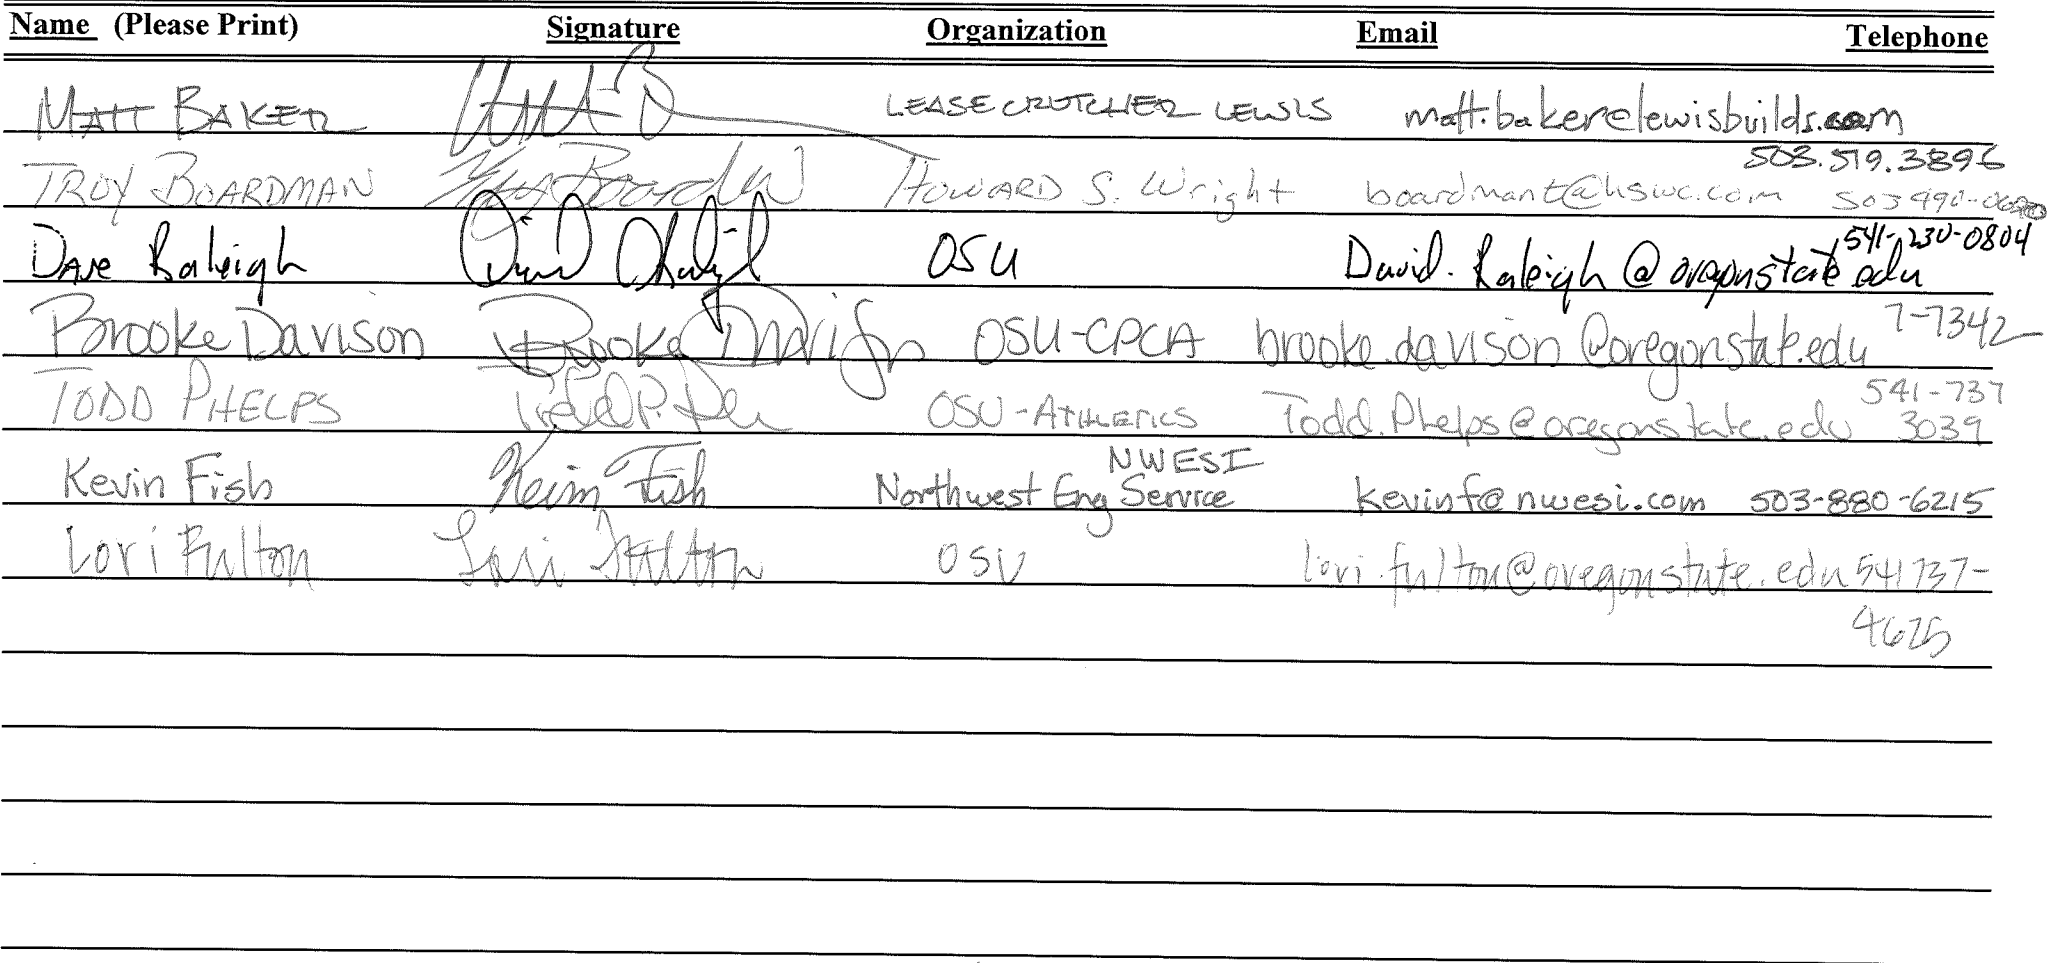 Name (Please Print) Signature Organization Email Telephone
MATT BAKER LEASE CRUTCHER LEWIS matt.baker@lewisbuilds.com
503.519.3896
TROY BOARDMAN Troy Boardman HOWARD S. Wright boardmant@hswc.com
541-230-0804
Dave Raleigh OSU David.Raleigh@oregonstate.edu
7-7342
Brooke Davison Brooke Davison OSU-CPCA brooke.davison@oregonstate.edu
541-737
TODD PHELPS OSU-ATHLETICS Todd.Phelps@oregonstate.edu 3039
NWESI
Kevin Fish Kevin Fish Northwest Eng Service kevinf@nwesi.com 503-880-6215
Lori Fulton Lori Fulton OSU lori.fulton@oregonstate.edu 541 737-
4625